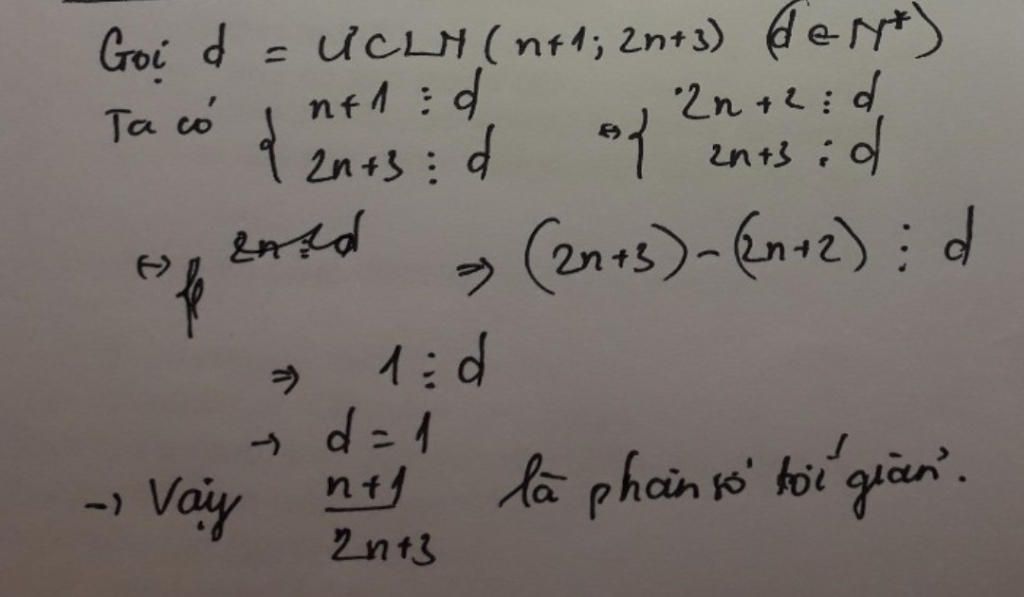 Gọi d = ƯCLN (n+1; 2n+3) (d ∈ N*)
Ta có { n+1 ⋮ d ⇔ { 2n+2 ⋮ d
2n+3 ⋮ d 2n+3 ⋮ d
⇔ { ⇒ (2n+3) - (2n+2) ⋮ d
⇒ 1 ⋮ d
→ d = 1
→ Vậy n+1 / 2n+3 là phân số tối giản.